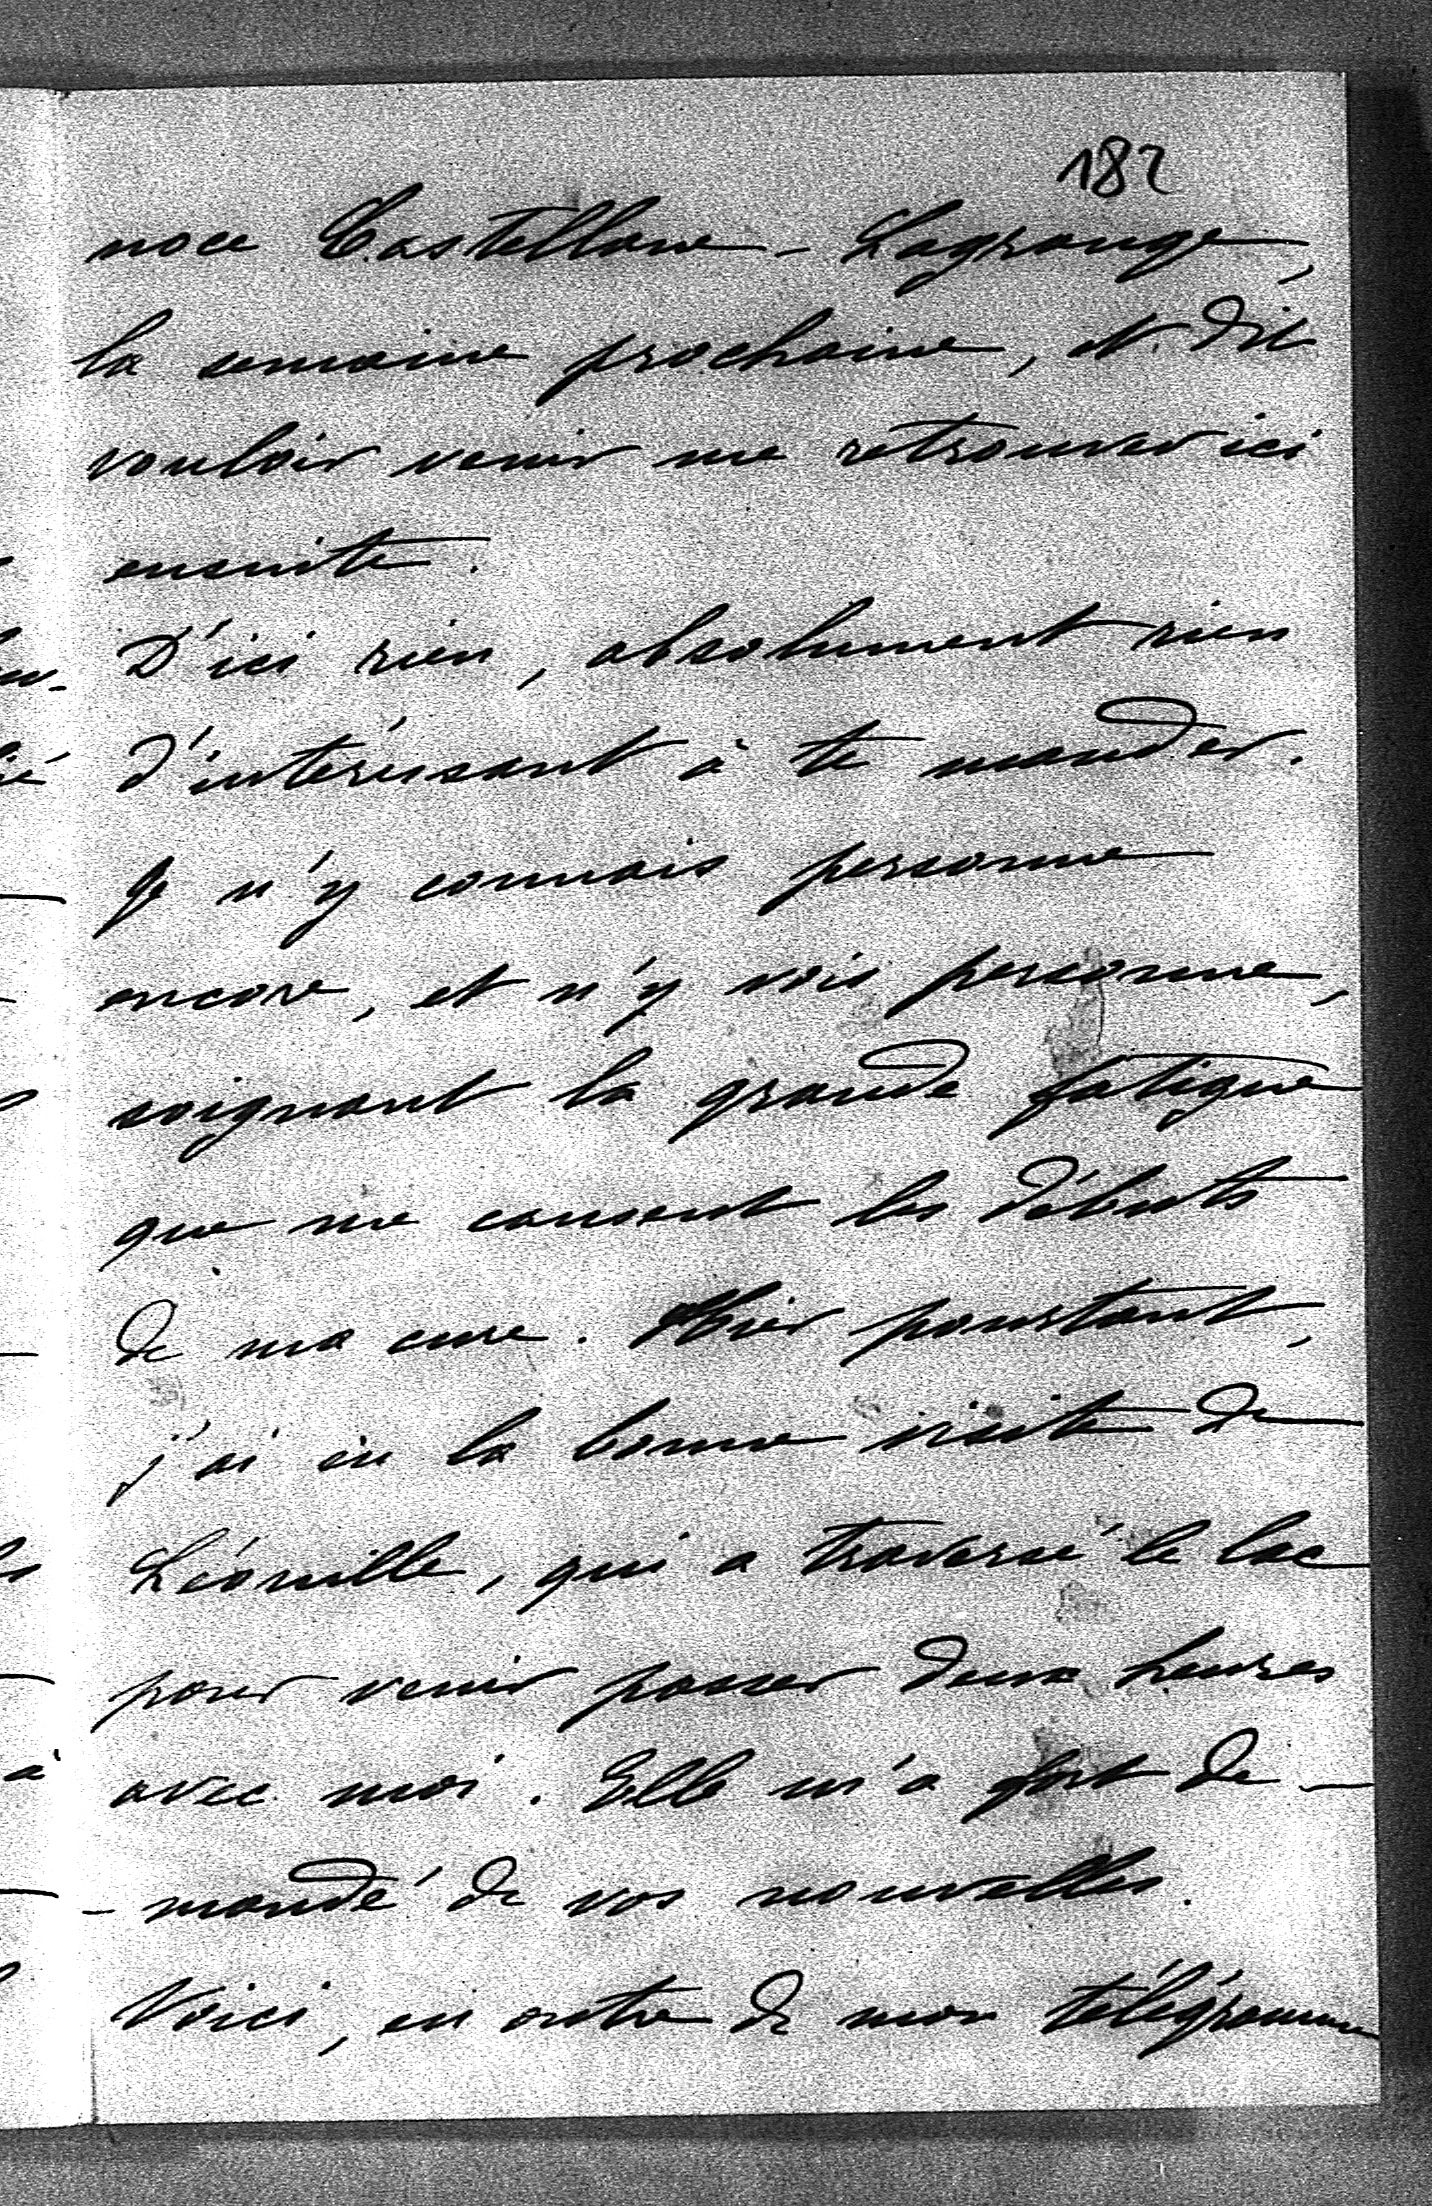 182
noce Castellane - Lagrange,
la semaine prochaine, et dit
vouloir venir me retrouver ici
ensuite.
D'ici rien, absolument rien
d'intéressant à te mander.
Je n'y connais personne
encore, et n'y vois personne,
soignant la grande fatigue
que me causent les débuts
de ma cure. Hier pourtant,
j'ai eu la bonne visite de
Léonille, qui a traversé le lac
pour venir passer deux heures
avec moi. Elle m'a fort de-
-mandé de vos nouvelles.
Voici, en outre de mon télégramme